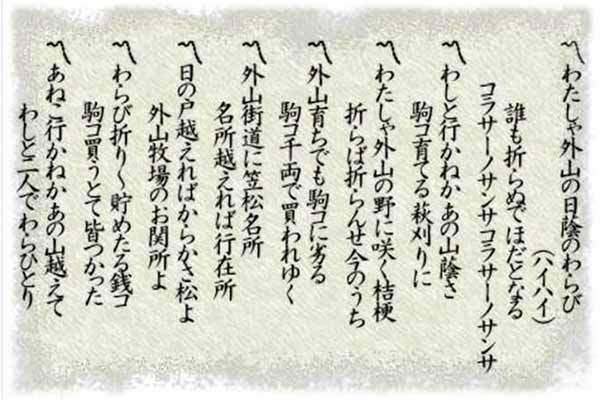 〽わたしゃ外山の日蔭のわらび
(ハイハイ)
誰も折らぬでほだとなる
コラサーノサンサコラサーノサンサ
〽わしと行かねかあの山蔭さ
駒コ育てる萩刈りに
〽わたしゃ外山の野に咲く桔梗
折らば折らんせ今のうち
〽外山育ちでも駒コに劣る
駒コ千両で買われゆく
〽外山街道に笠松名所
名所越えれば行在所
〽日の戸越えればからかさ松よ
外山牧場のお関所よ
〽わらび折り〱貯めたる銭コ
駒コ買うとて皆つかった
〽あねこ行かねかあの山越えて
わしと二人でわらびとり